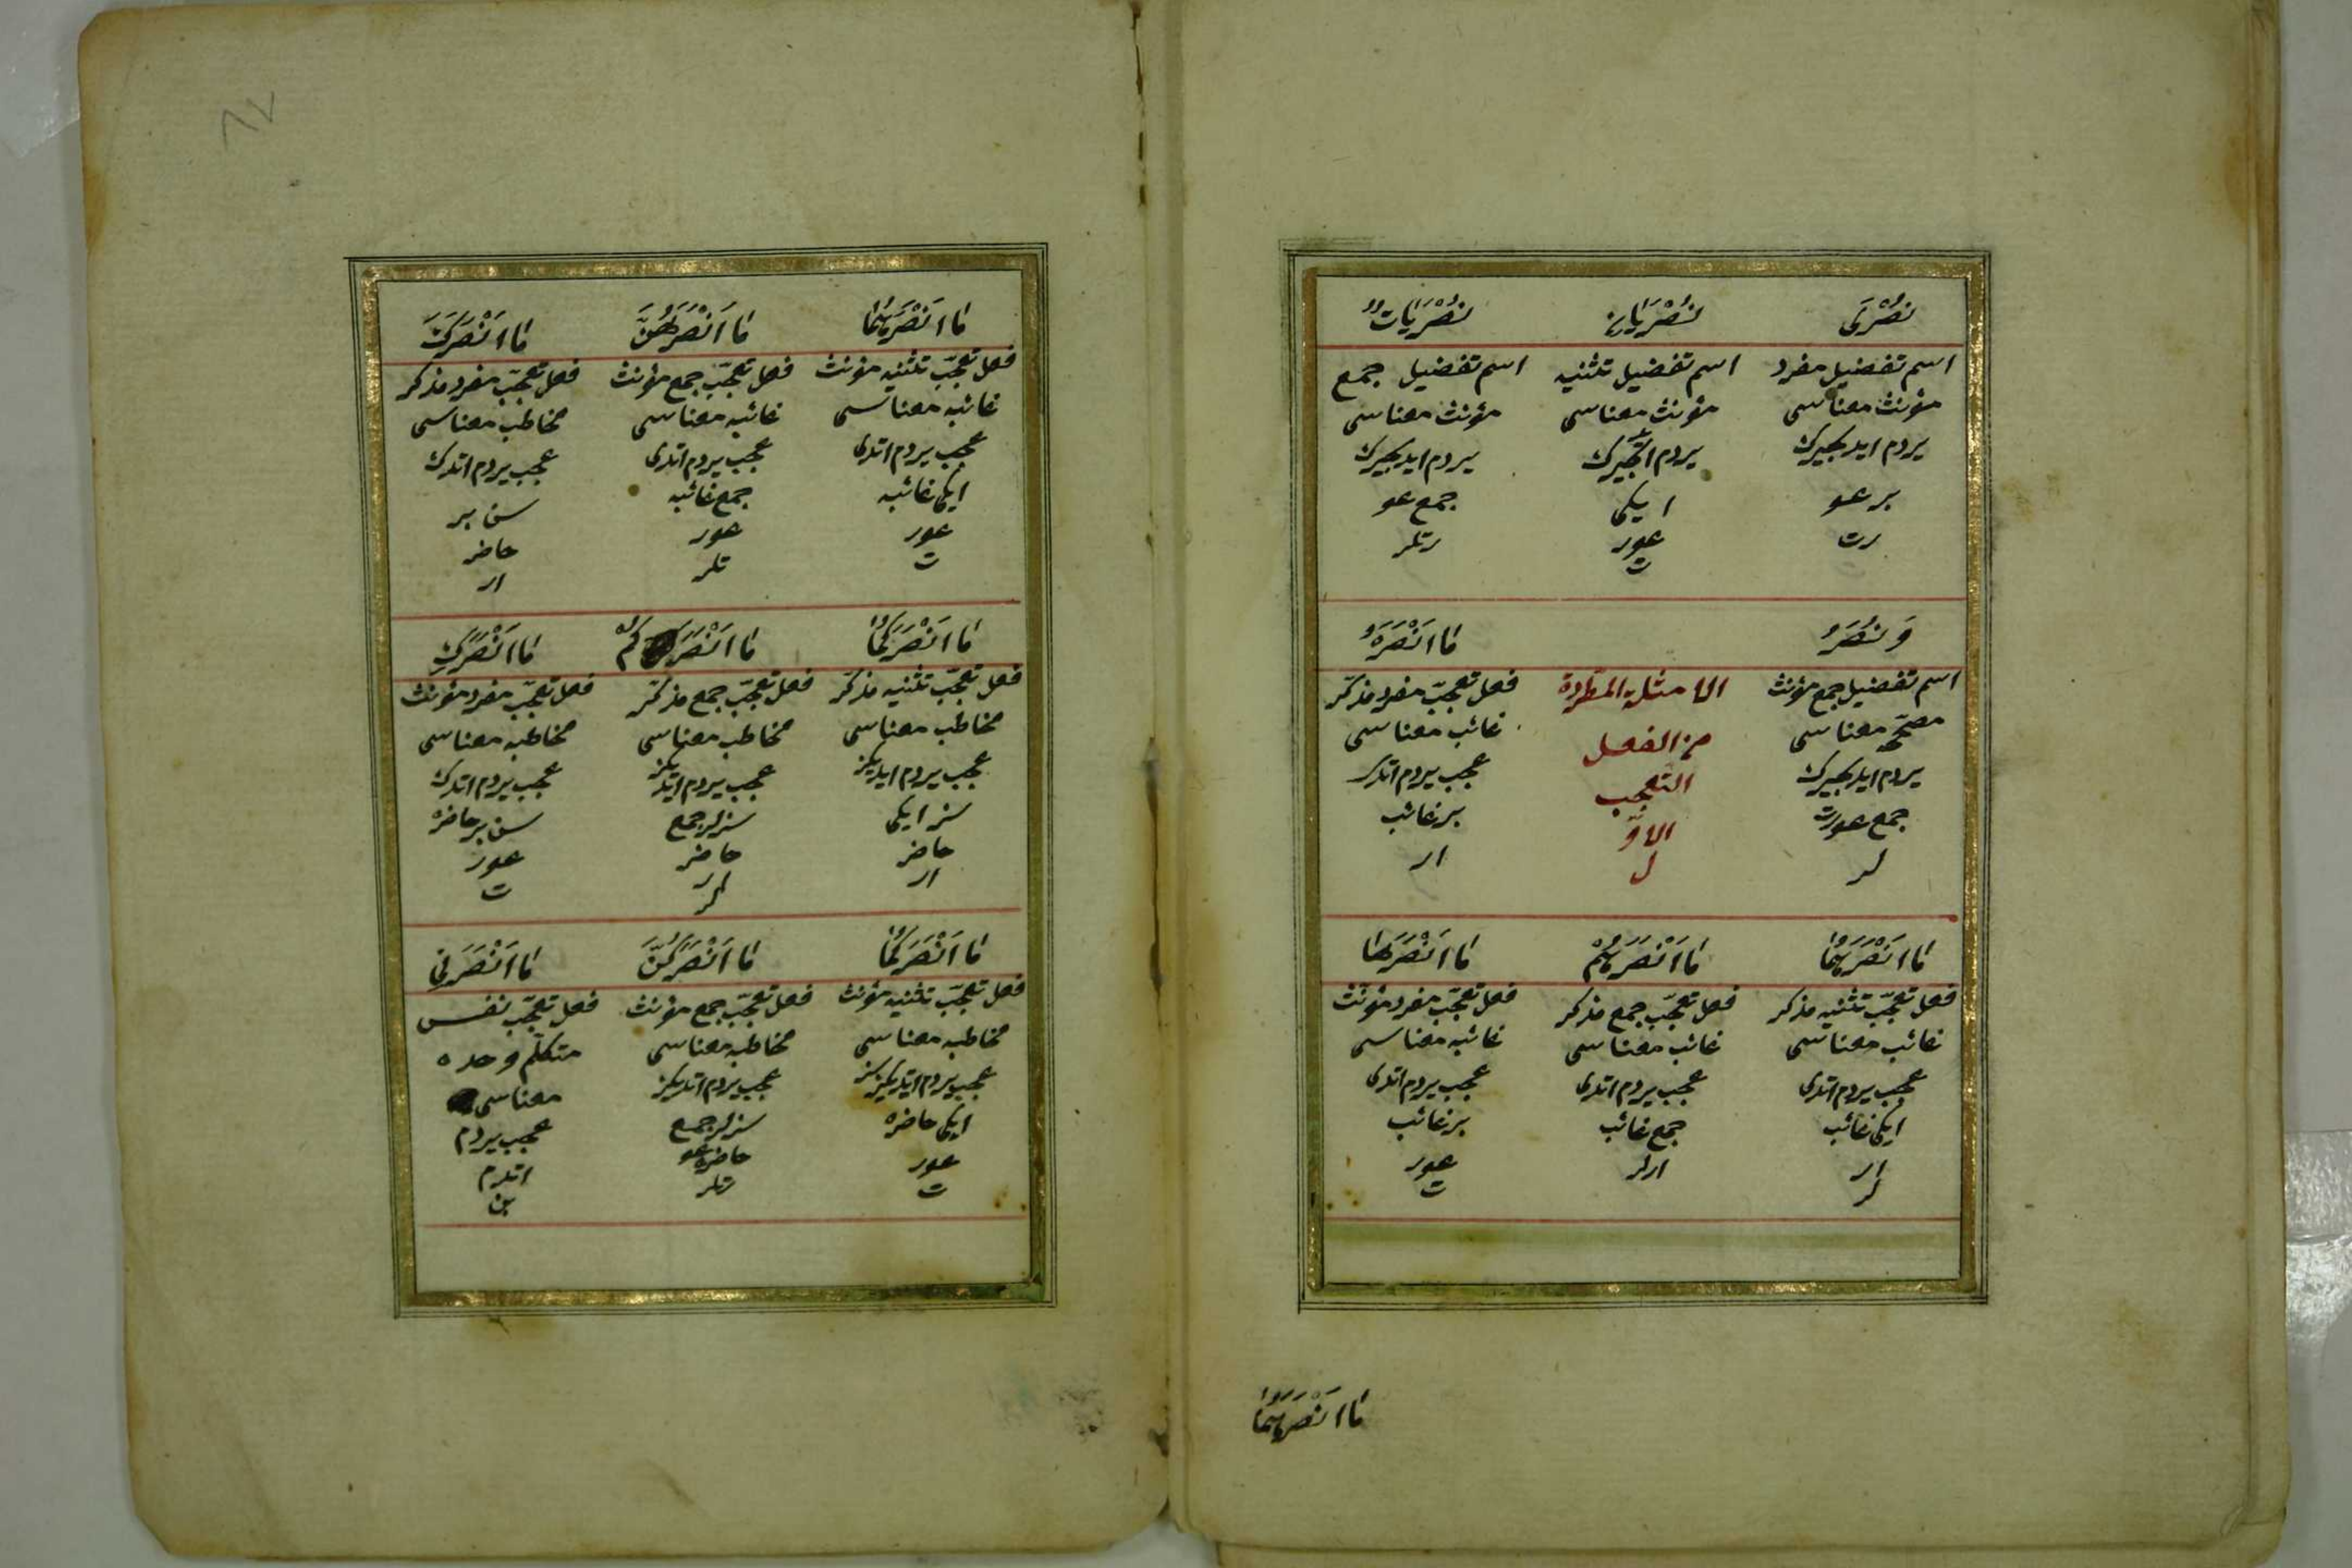 نُصْرَى
اسم تفضيل مفرد
مؤنث معناسى
يردم ايديجيرك
بر عو
رت
نُصْرَيَانِ
اسم تفضيل تثنيه
مؤنث معناسى
ايكى
عور
ت
نُصْرَيَاتٌ
اسم تفضيل جمع
مؤنث معناسى
يردم ايديجيرك
جمع عو
رتلر
وَ نُصَرُ
اسم تفضيل جمع مؤنث
معناسى
يردم ايديجيرك
جمع عورت
لر
الامثلة المطردة
من الفعل
التعجب
الاوّ
ل
مَا اَنْصَرَهُ
فعل تعجّب مفرد مذكّر
غائب معناسى
عجب يردم اتدى
بر غائب
ار
مَا اَنْصَرَهُمَا
فعل تعجّب تثنيه مذكر
غائب معناسى
عجب يردم اتدى
ايكى غائب
ار
لر
مَا اَنْصَرَهُمْ
فعل تعجّب جمع مذكر
غائب معناسى
عجب يردم اتدى
جمع غائب
ارلر
مَا اَنْصَرَهَا
فعل تعجّب مفرد مؤنث
غائبه معناسى
عجب يردم اتدى
بر غائب
عور
ت
مَا اَنْصَرَهُمَا
مَا اَنْصَرَهُمَا
فعل تعجّب تثنيه مؤنث
غائبه معناسى
عجب يردم اتدى
ايكى غائبه
عور
ت
مَا اَنْصَرَهُنَّ
فعل تعجّب جمع مؤنث
غائبه معناسى
عجب يردم اتدى
جمع غائبه
عور
تلر
مَا اَنْصَرَكَ
فعل تعجّب مفرد مذكر
مخاطب معناسى
عجب يردم اتدك
سن بر
حاضر
ار
مَا اَنْصَرَكُمَا
فعل تعجّب تثنيه مذكّر
مخاطب معناسى
عجب يردم ايديكز
سز ايكى
حاضر
ار
مَا اَنْصَرَكُمْ
فعل تعجّب جمع مذكّر
مخاطب معناسى
عجب يردم ايتديكز
سزلر جمع
حاضر
ار
لر
مَا اَنْصَرَكِ
فعل تعجّب مفرد مؤنث
مخاطبه معناسى
عجب يردم اتدك
سن بر حاضره
عور
ت
مَا اَنْصَرَكُمَا
فعل تعجّب تثنيه مؤنث
مخاطبه معناسى
عجب يردم ايتديكز سز
ايكى حاضره
عور
ت
مَا اَنْصَرَكُنَّ
فعل تعجّب جمع مؤنث
مخاطبه معناسى
عجب يردم اتديكز
سزلر جمع
حاضره عو
رتلر
مَا اَنْصَرَنِى
فعل تعجّب نفس
متكلّم وحده
معناسى
عجب يردم
اتدم
بن